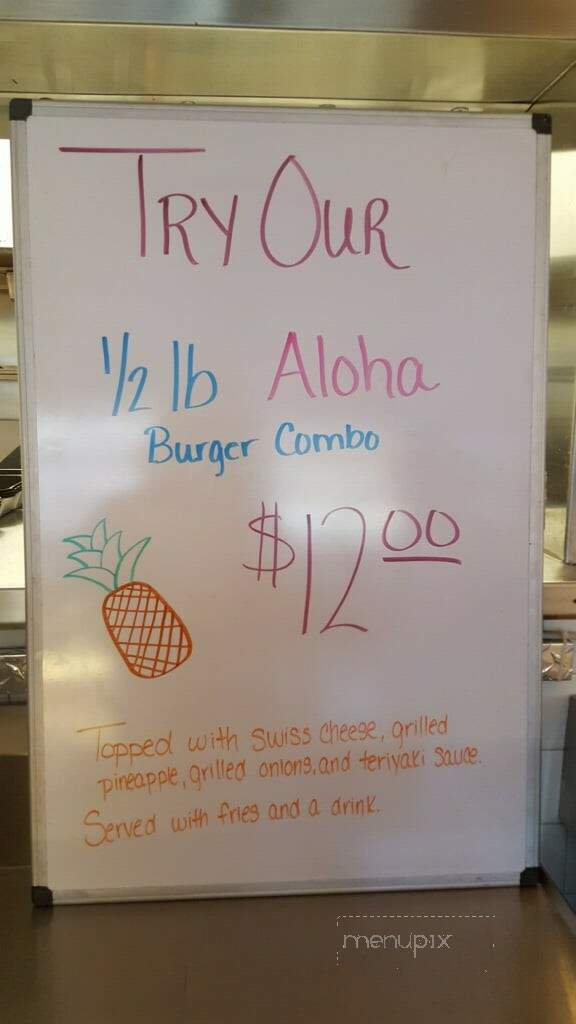 Try Our
1/2 lb Aloha
Burger Combo
$12.00
Topped with swiss cheese, grilled
pineapple, grilled onions, and teriyaki sauce.
Served with fries and a drink.
menupix